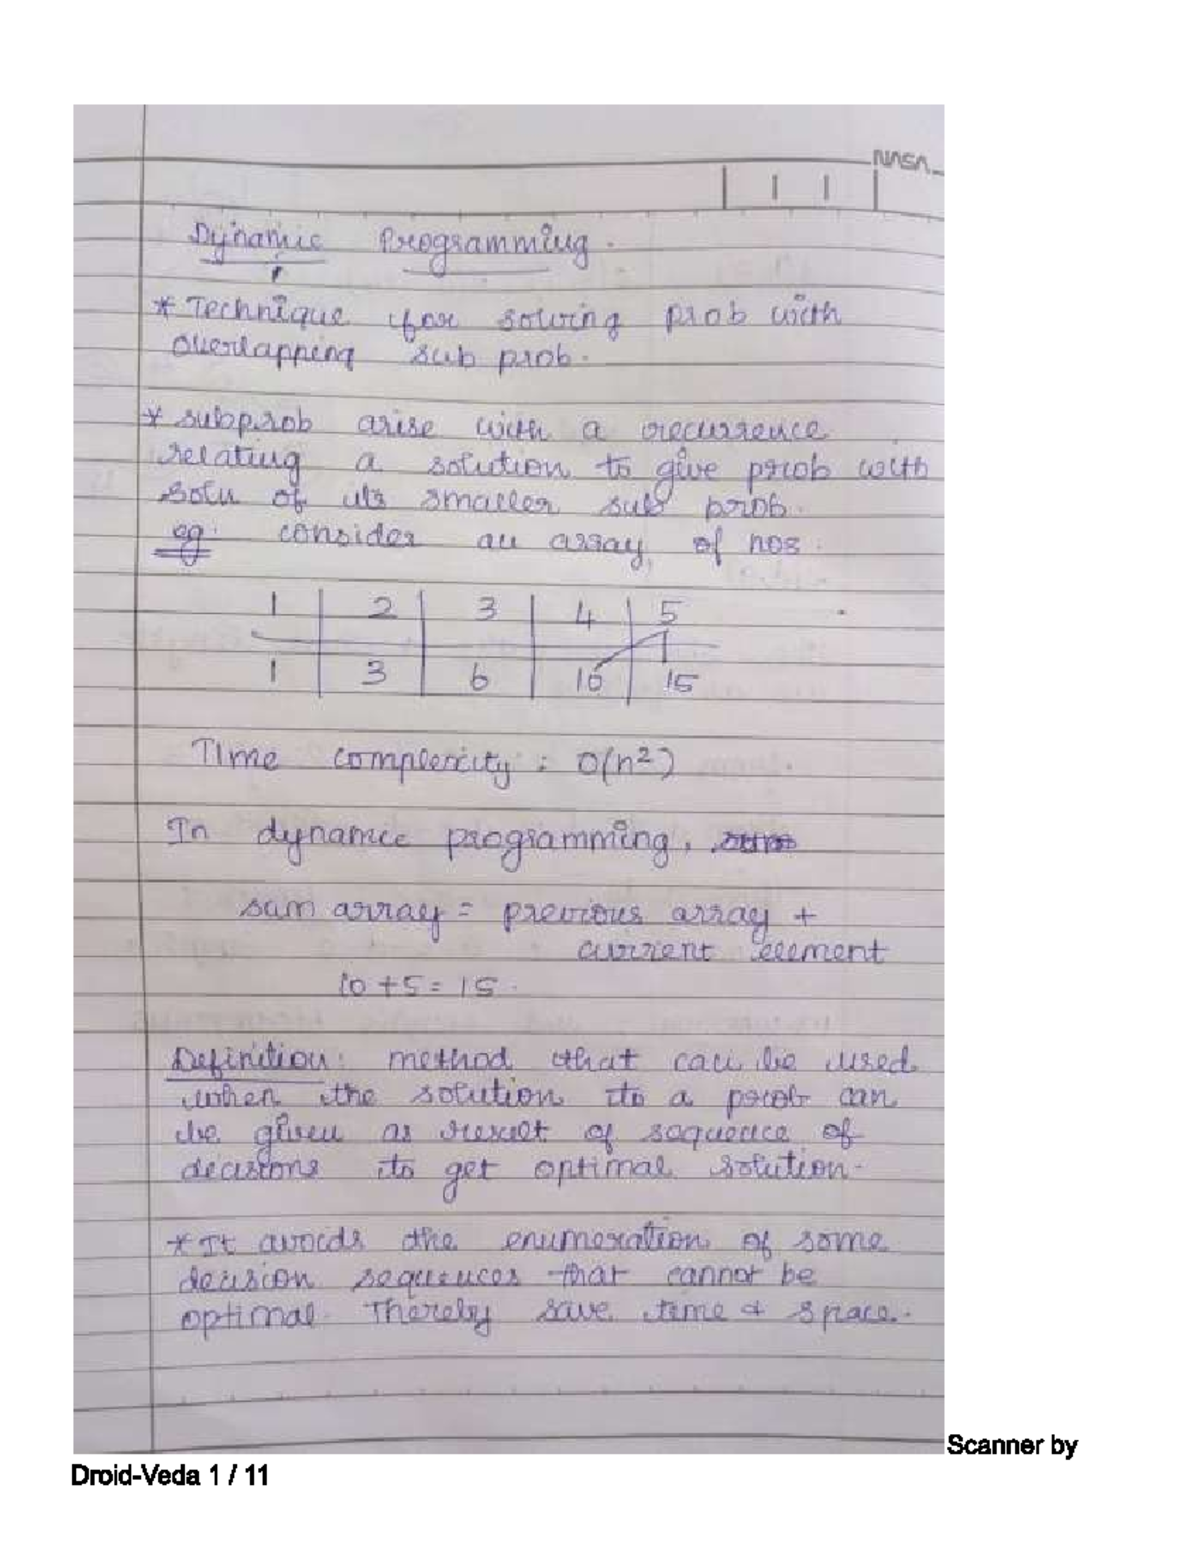 NASA
Dynamic Programming.
* Technique for solving prob with
overlapping sub prob.
* subprob arise with a recurrence
relating a solution to give prob with
solu of its smaller sub prob.
eg. consider an array of nos.
1 2 3 4 5
1 3 6 10 15
Time complexity : O(n²)
In dynamic programming,
sum array = previous array +
current element
10 + 5 = 15.
Definition: method that can be used
when the solution to a prob can
be given as result of sequence of
decisions to get optimal solution.
* It avoids the enumeration of some
decision sequences that cannot be
optimal. Thereby save time & space.
Scanner by
Droid-Veda 1 / 11